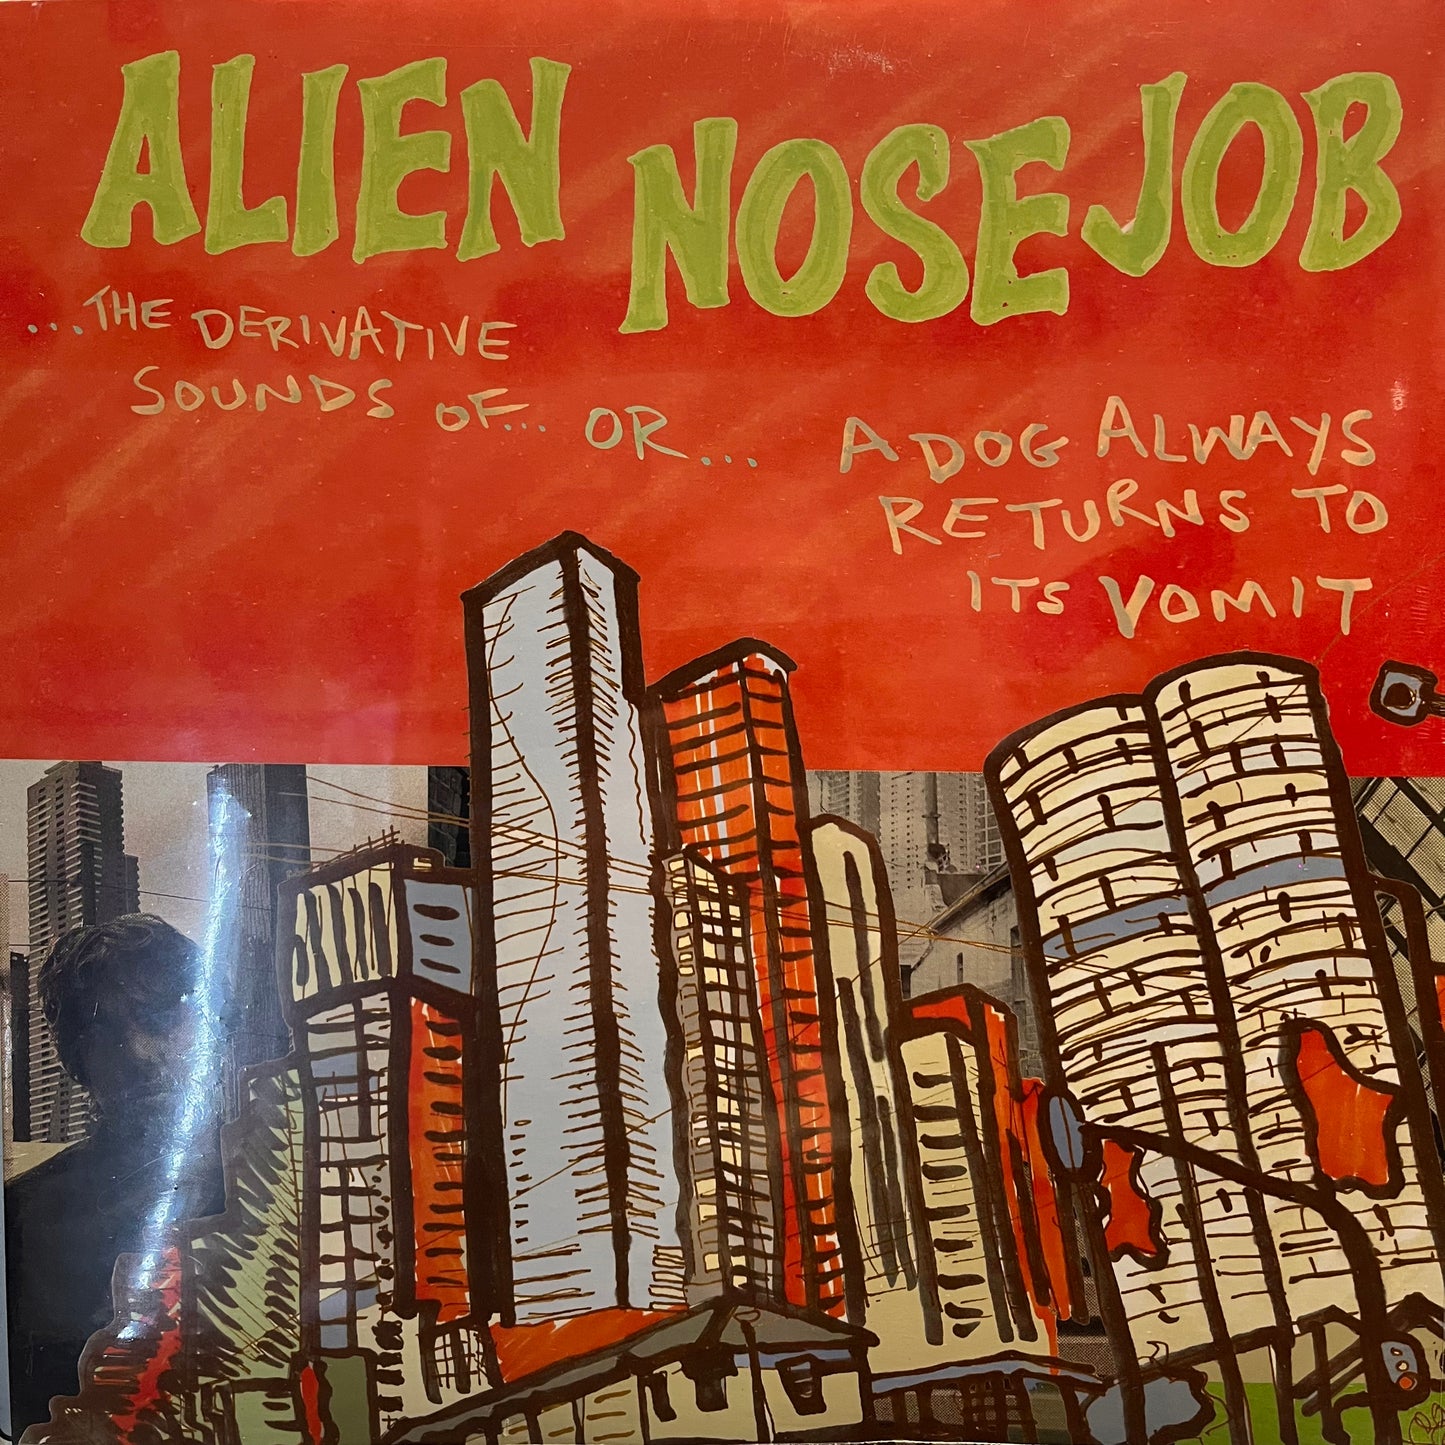 ALIEN NOSEJOB
...THE DERIVATIVE
SOUNDS OF... OR...
A DOG ALWAYS
RETURNS TO
ITS VOMIT